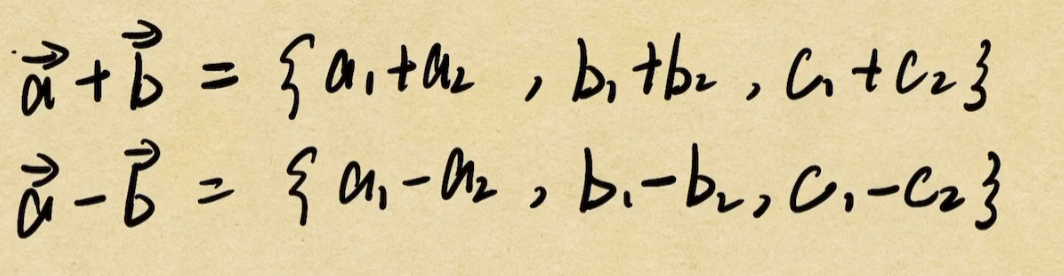 a⃗ + b⃗ = {a₁+a₂ , b₁+b₂ , c₁+c₂}
a⃗ − b⃗ = {a₁−a₂ , b₁−b₂ , c₁−c₂}